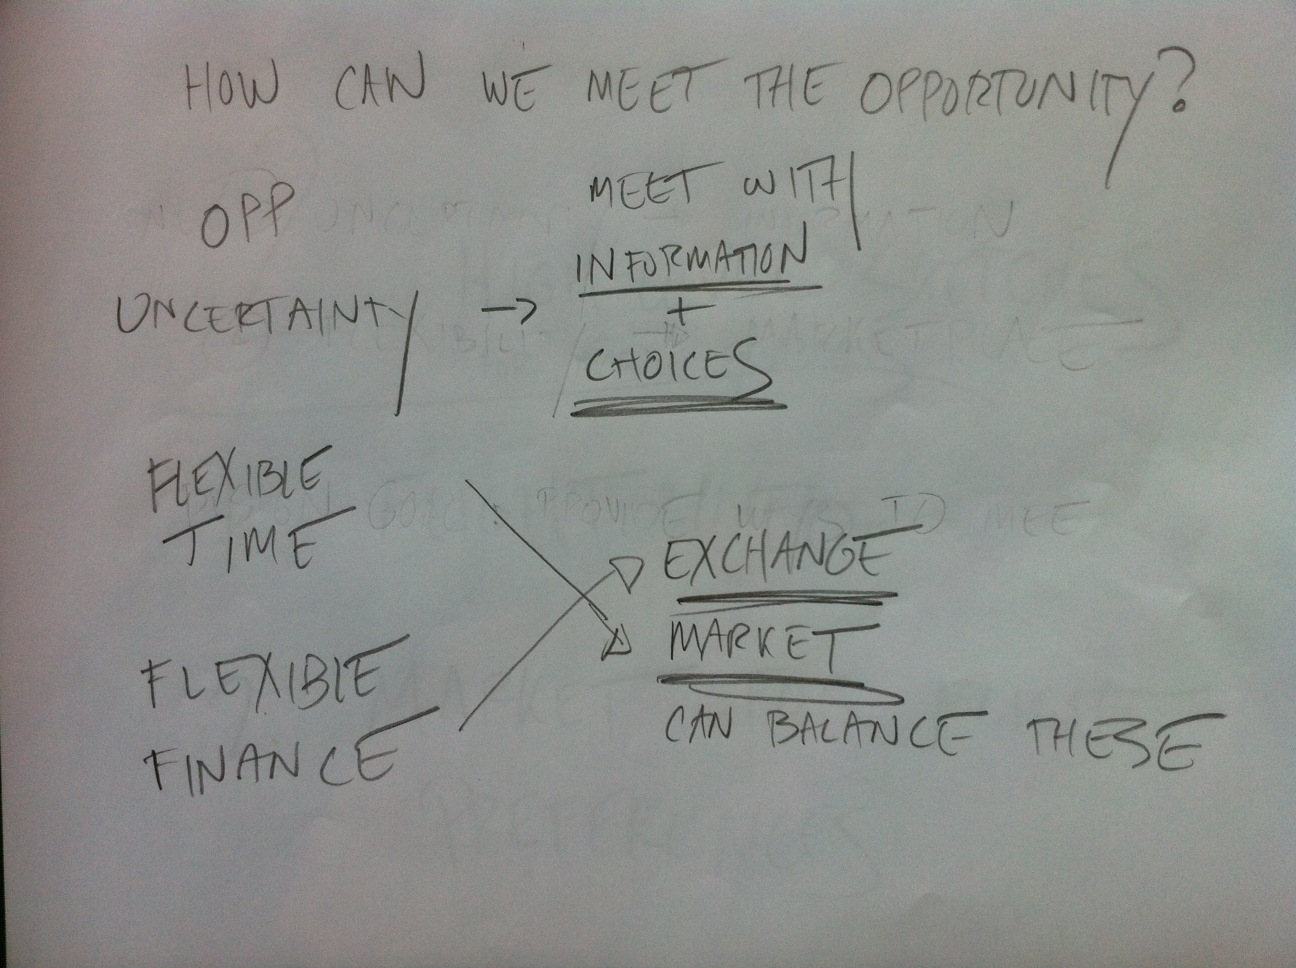 HOW CAN WE MEET THE OPPORTUNITY?
OPP
MEET WITH
UNCERTAINTY → INFORMATION
+
CHOICES
FLEXIBLE
TIME
FLEXIBLE
FINANCE
EXCHANGE
MARKET
CAN BALANCE THESE